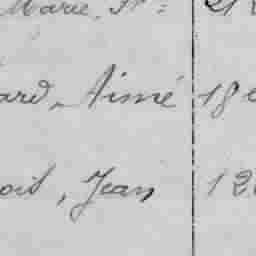 Marie, St=
ard, Aimé 18
oit, Jean 12